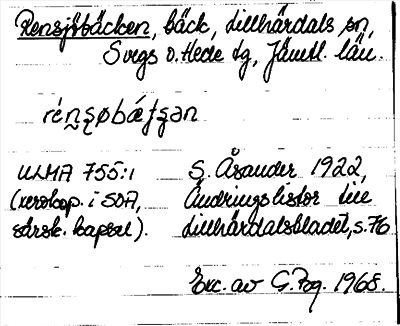 Rensjöbäcken, bäck, Lillhärdals sn,
Svegs o. Hede tg, Jämtl. län.
rén̰ʂøbǽʈʂən
ULMA 755:1 S. Åsander 1922,
(xerokop. i SOA, Ändringslistor till
särsk. kapsel). Lillhärdalsbladet, s. 76
Exc. av G. Fog. 1968.